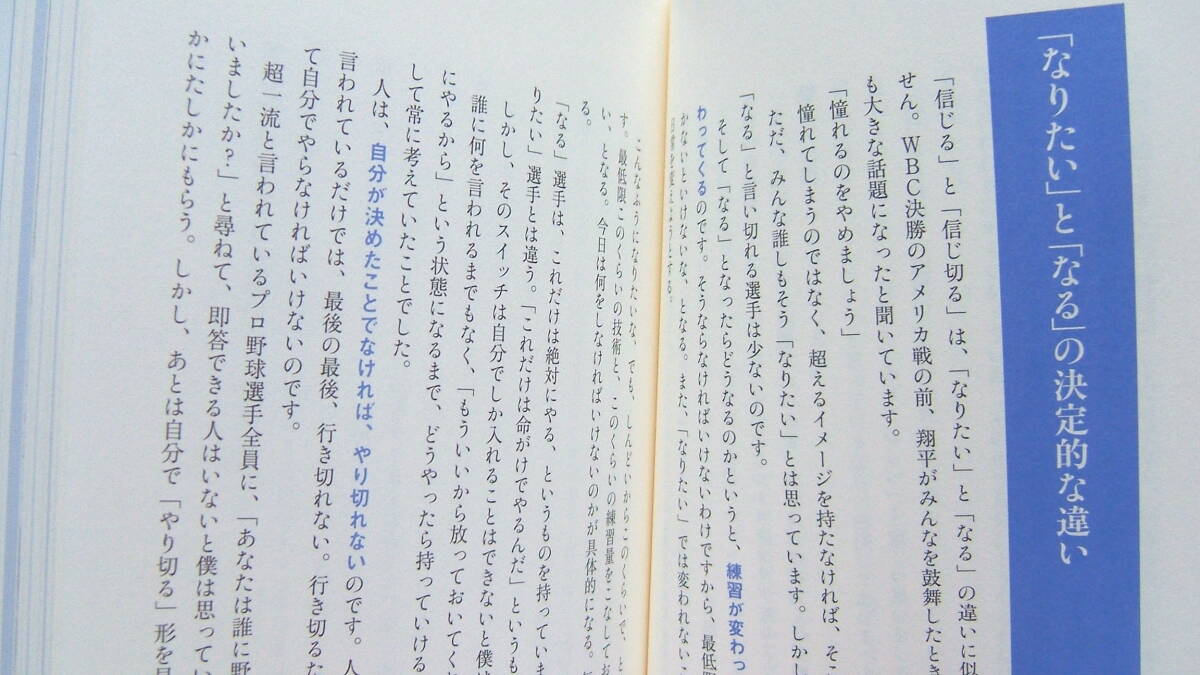 「なりたい」と「なる」の決定的な違い
「信じる」と「信じ切る」は、「なりたい」と「なる」の違いに似
せん。ＷＢＣ決勝のアメリカ戦の前、翔平がみんなを鼓舞したとき
も大きな話題になったと聞いています。
「憧れるのをやめましょう」
憧れてしまうのではなく、超えるイメージを持たなければ、そこ
ただ、みんな誰しもそう「なりたい」とは思っています。しかし
「なる」と言い切れる選手は少ないのです。
そして「なる」となったらどうなるのかというと、練習が変わっ
わってくるのです。そうならなければいけないわけですから、最低限
かないといけないな、となる。また、「なりたい」では変われないこ
こんなふうになりたいな、でも、しんどいからこのくらいで、と
す。最低限このくらいの技術と、このくらいの練習量をこなしてお
い、となる。今日は何をしなければいけないのかが具体的になる。
る。
「なる」選手は、これだけは絶対にやる、というものを持っていま
りたい」選手とは違う。「これだけは命がけでやるんだ」というも
しかし、そのスイッチは自分でしか入れることはできないと僕
誰に何を言われるまでもなく、「もういいから放っておいてく
にやるから」という状態になるまで、どうやったら持っていける
して常に考えていたことでした。
人は、自分が決めたことでなければ、やり切れないのです。人
言われているだけでは、最後の最後、行き切れない。行き切るた
て自分でやらなければいけないのです。
超一流と言われているプロ野球選手全員に、「あなたは誰に野
いましたか？」と尋ねて、即答できる人はいないと僕は思ってい
かにたしかにもらう。しかし、あとは自分で「やり切る」形を